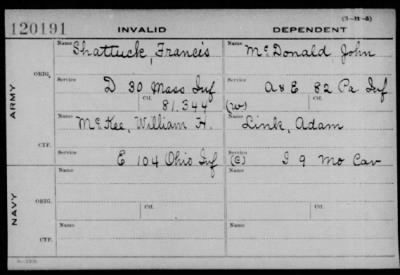 (3-11-5)
120191 INVALID DEPENDENT
Name Shattuck, Francis Name McDonald John
ORIG.
Service D 30 Mass Inf Service A & E 82 Pa Inf
Ctf. 81.344 Ctf. (W)
ARMY
Name McKee, William H. Name Link, Adam
CTF.
Service E 104 Ohio Inf Service (C) I 9 Mo Cav
Name Name
NAVY
ORIG.
Ctf. Ctf.
Name Name
CTF.